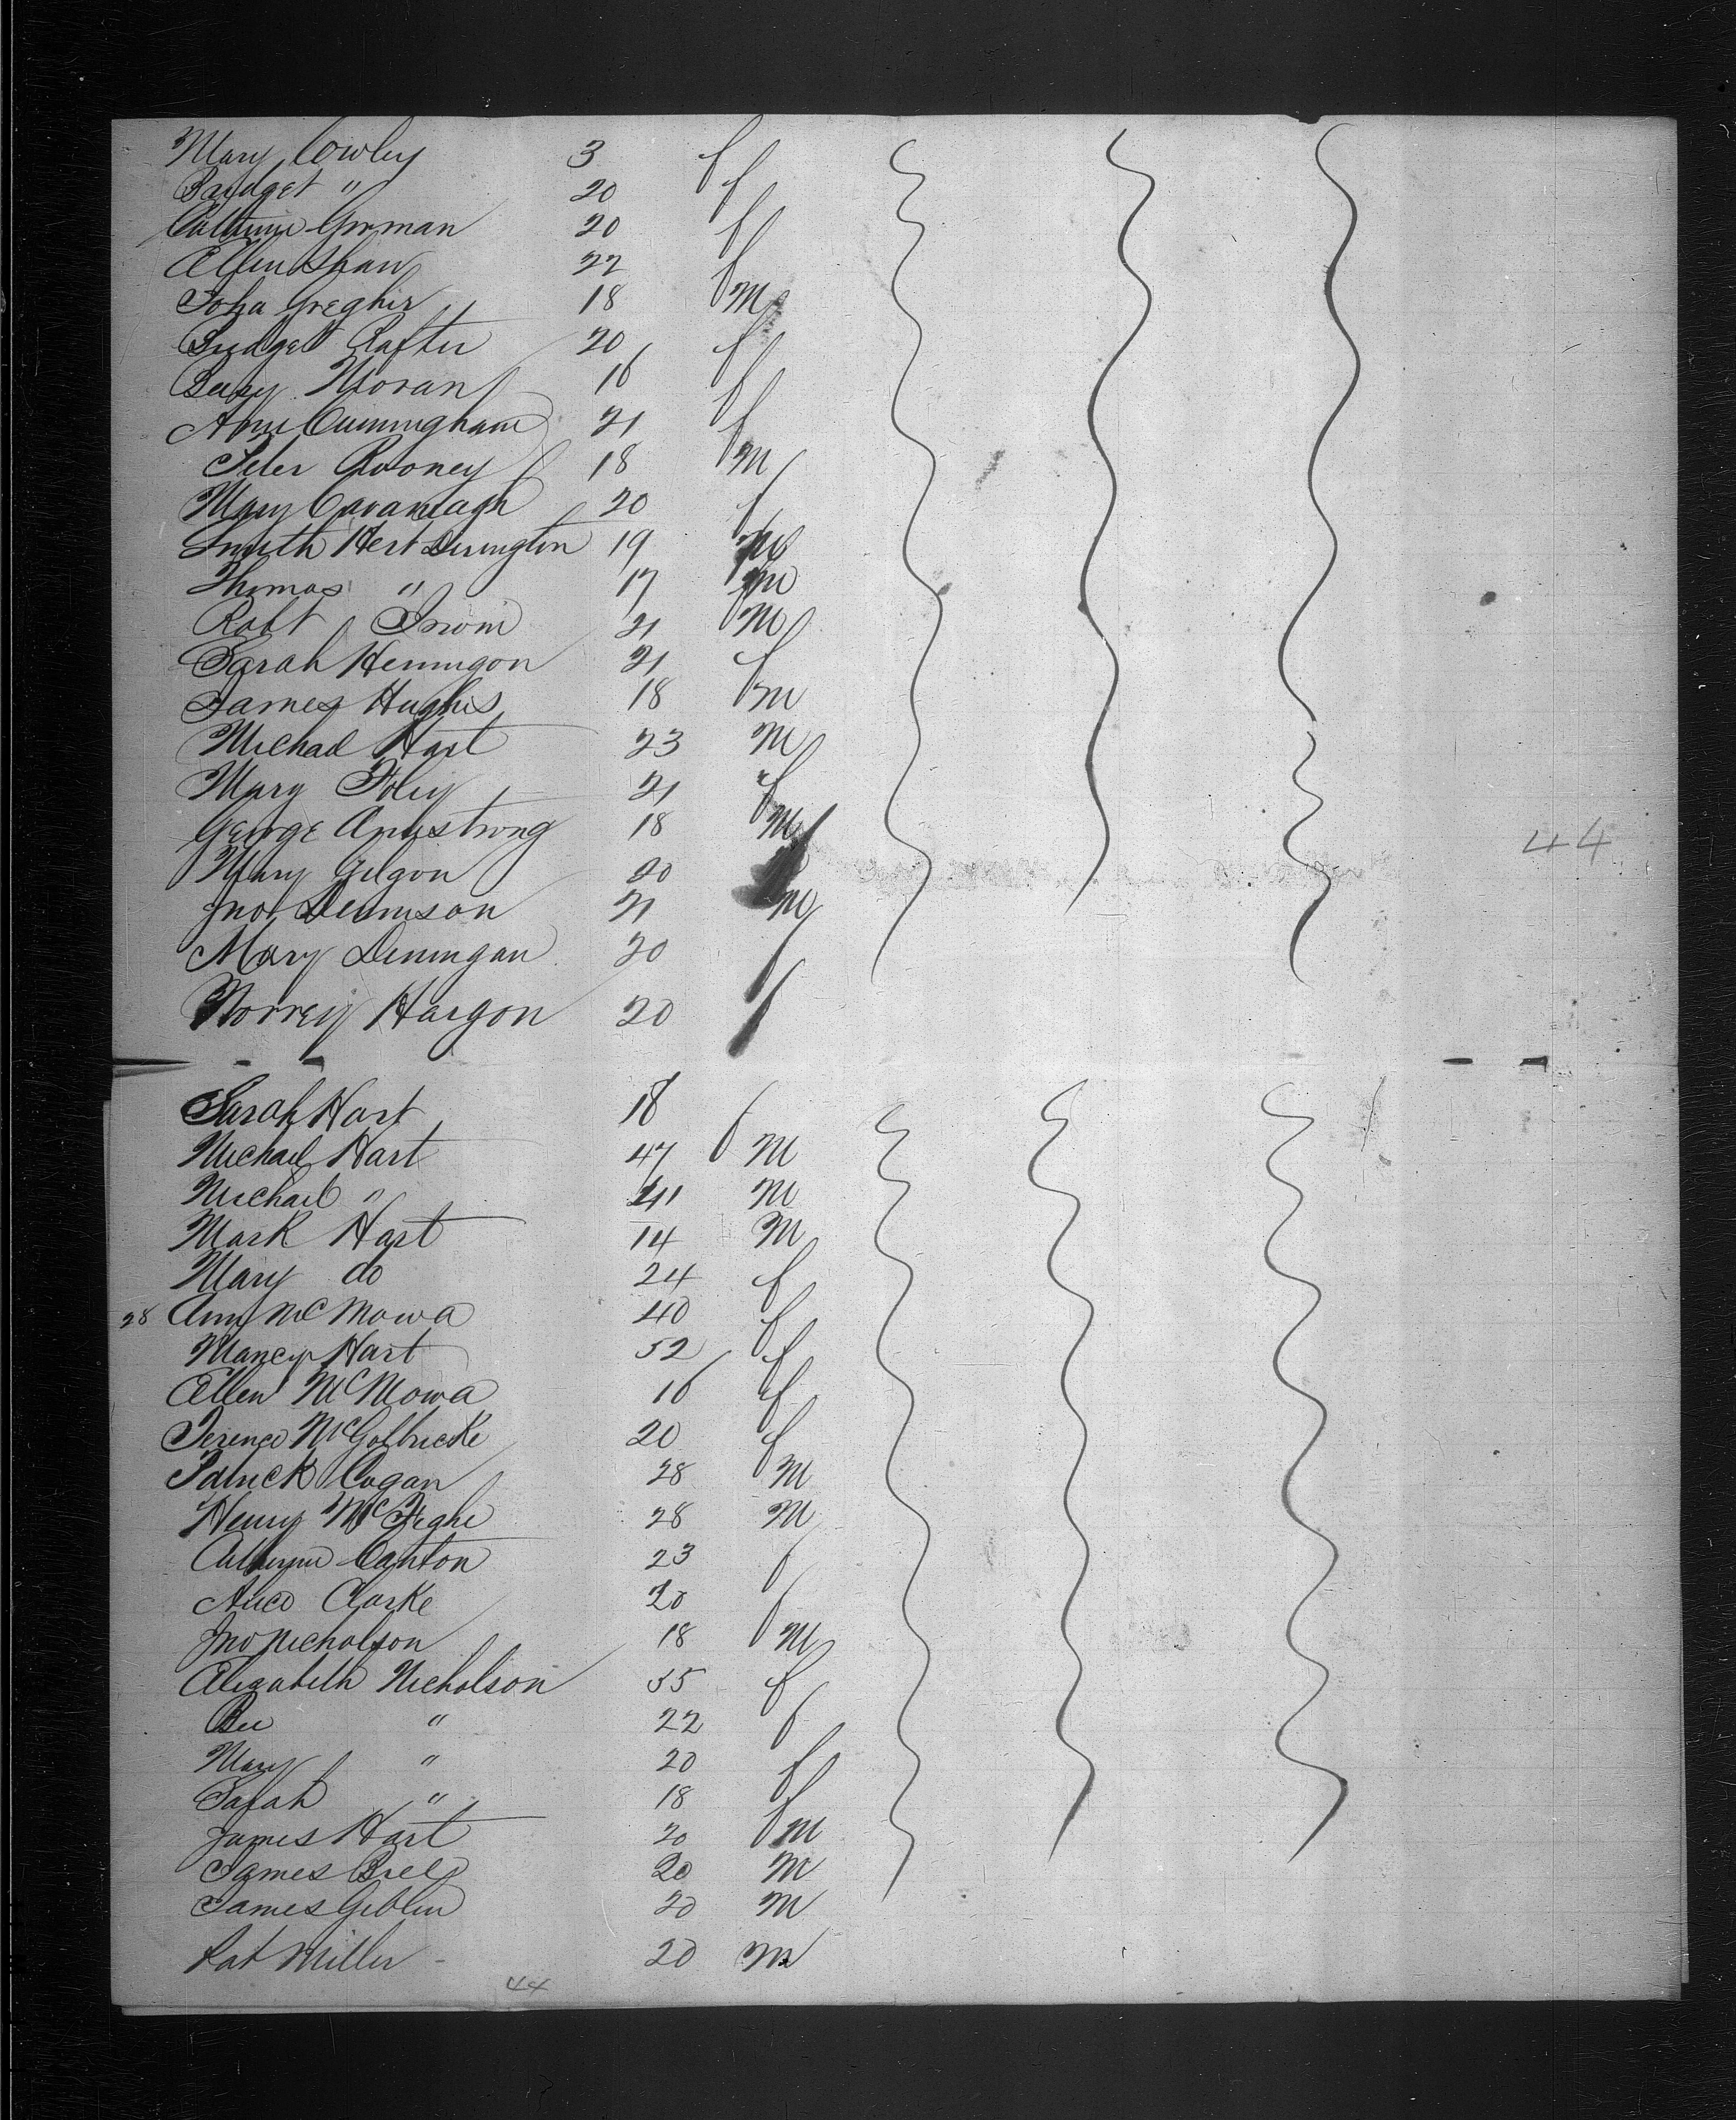 Mary Cowley 3 f
Bridget " 20 f
Catherine Gorman 20 f
Ellen Shaw 22 f
John 18 M
Bridget Rafter 20 f
Moran 16 f
Ann Cunningham 21 f
Peter Rooney 18 M
Mary Cavanagh 20 f
Smith Hert 19 M
Thomas " 17 M
Robt Irwin 21 M
Sarah Hennigon 21 f
James Hughes 18 M
Michael Hart 23 M
Mary Foley 21 f
George Armstrong 18 M
44
Mary Gilgon 20
Jno Dennison 21 M
Mary Dennigan 20 f
Hargon 20 f
Sarah Hart 18 f
Michael Hart 47 M
Michael " 41 M
Mark Hart 14 M
Mary do 24 f
28 Ann McMowa 40 f
Nancy Hart 52 f
Ellen McMowa 16 f
Terence McGolbricke 20 f
Patrick Cogan 28 M
Henry 28 M
Catherine Canton 23 f
Clarke 20 f
Jno Nicholson 18 M
Elizabeth Nicholson 55 f
Bee " 22 f
Mary " 20 f
Sarah " 18 f
James Hart 20 M
James 20 M
James Giblin 20 M
Pat Miller 20 M
44